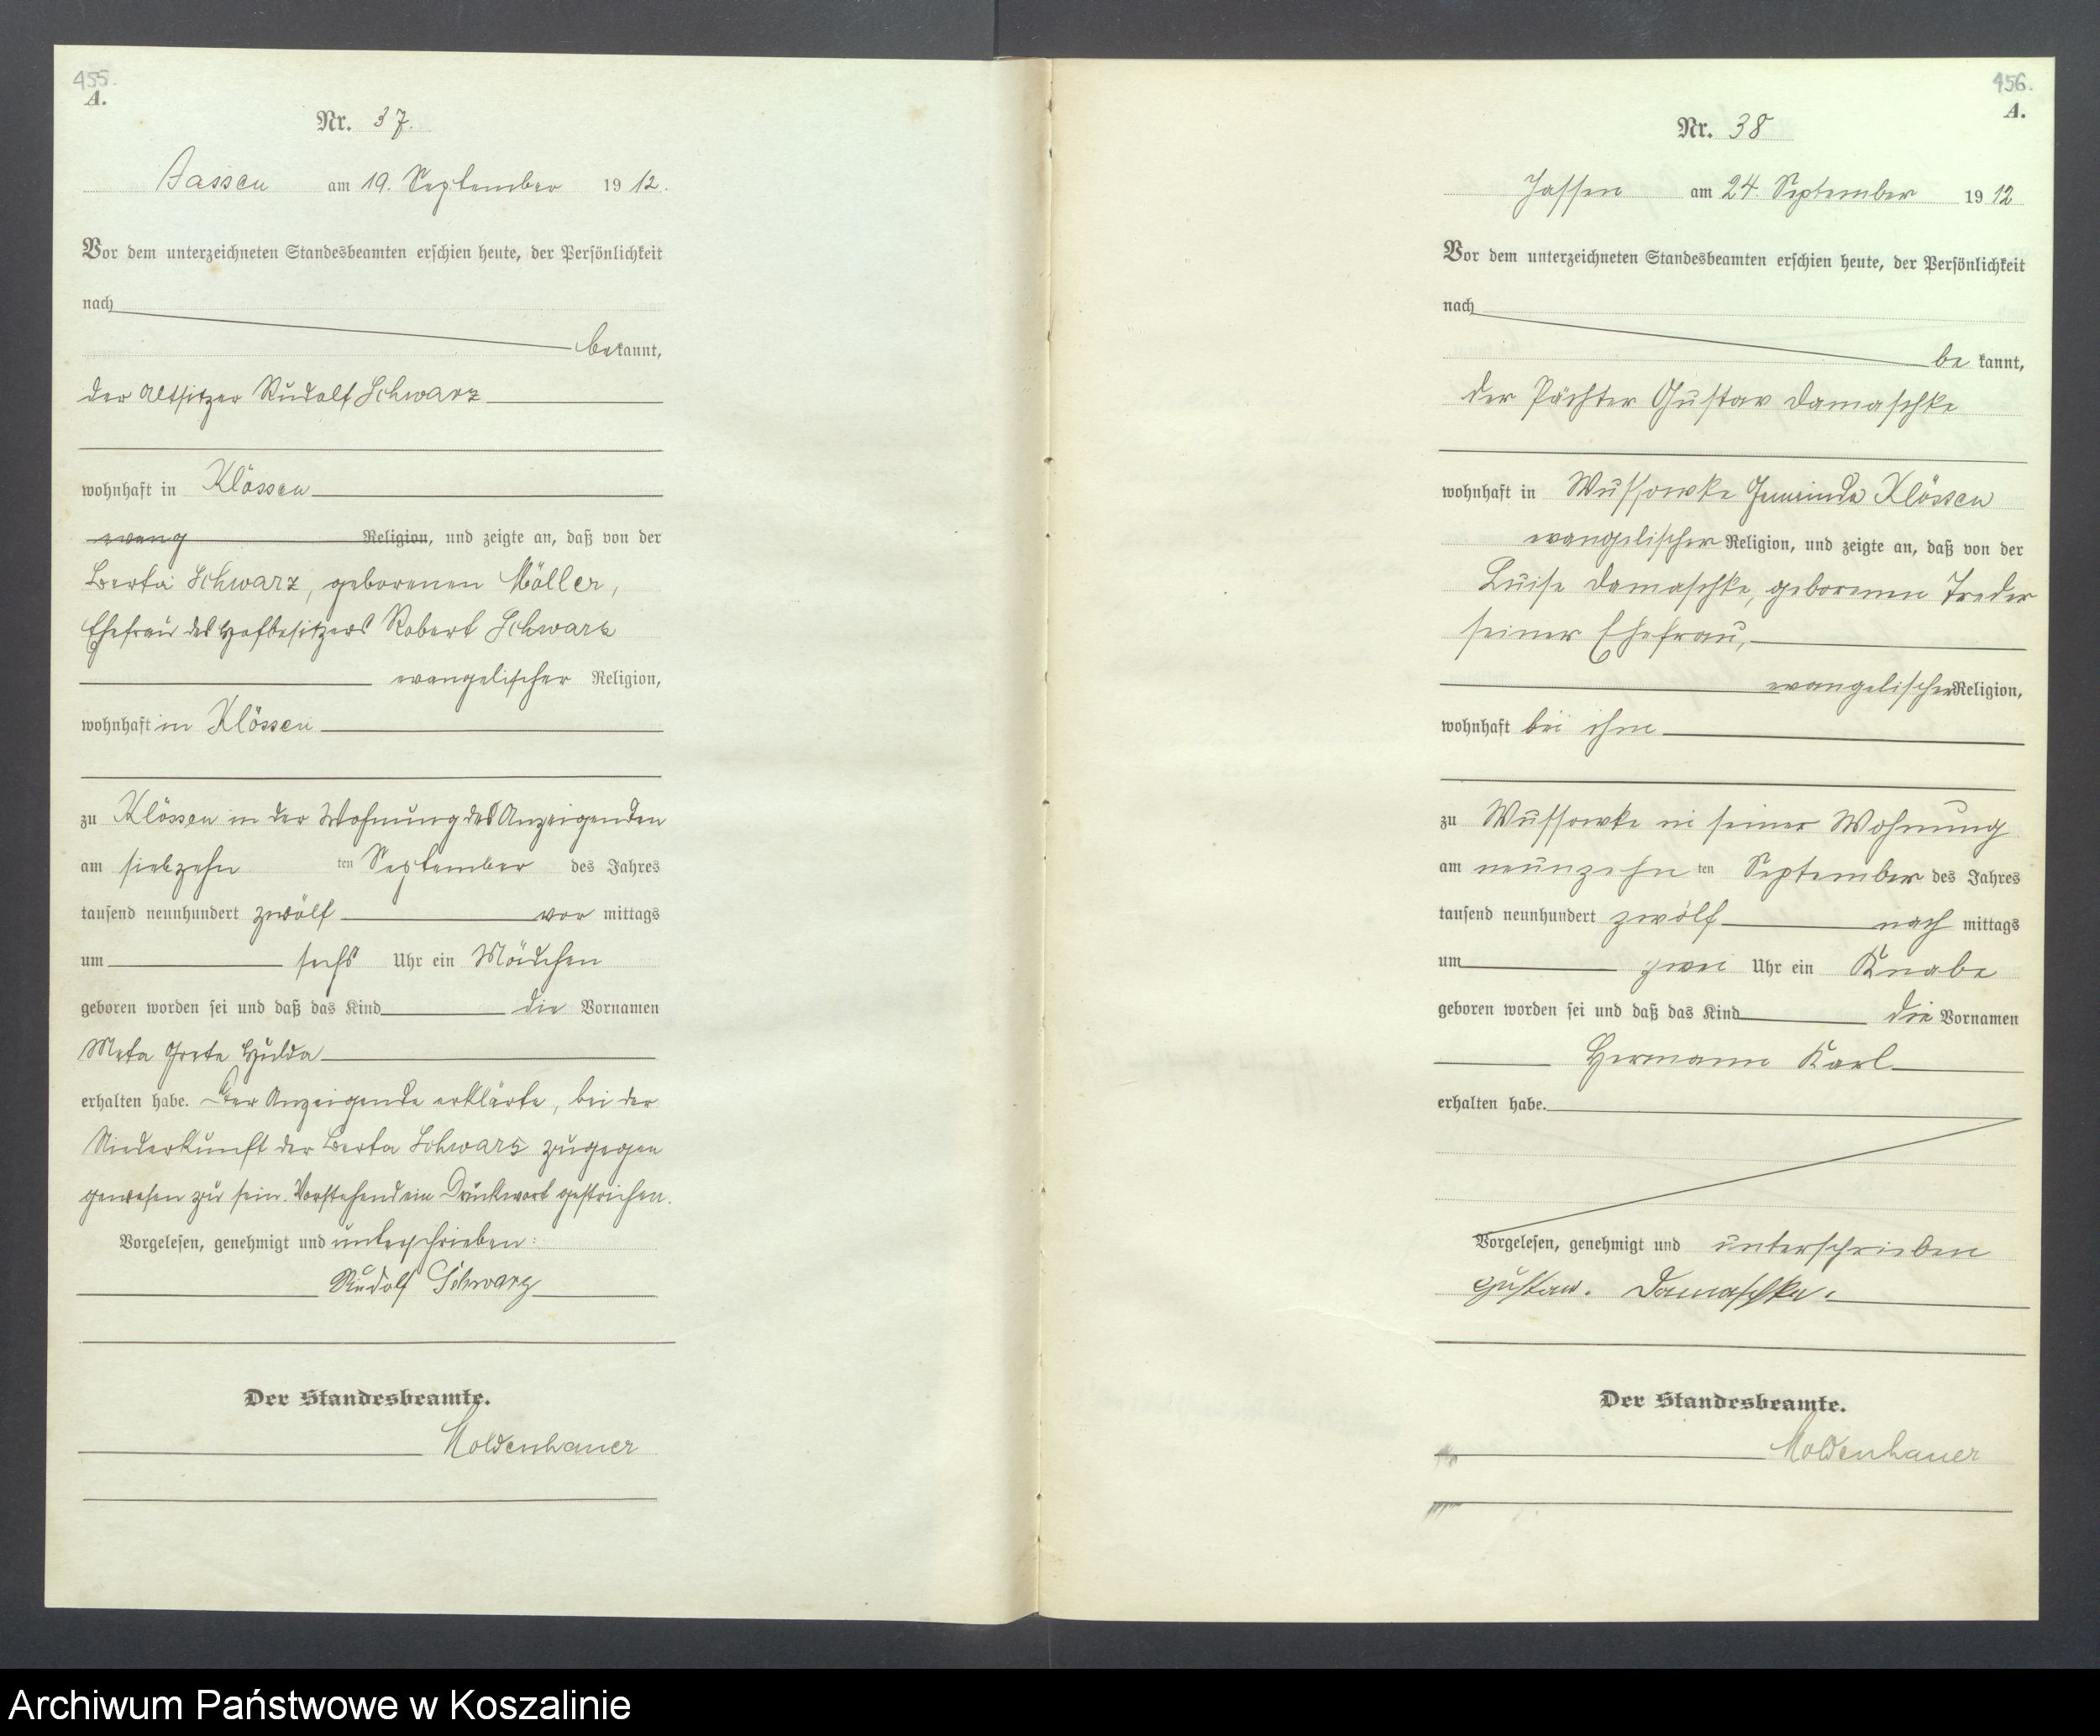 455.
A.
Nr. 37.
Jassen am 19. September 1912.
Vor dem unterzeichneten Standesbeamten erschien heute, der Persönlichkeit
nach
bekannt,
der Altsitzer Rudolf Schwarz
wohnhaft in Klössen
evang Religion, und zeigte an, daß von der
Berta Schwarz, geborenen Möller,
Ehefrau des Hofbesitzers Robert Schwarz
evangelischer Religion,
wohnhaft in Klössen
zu Klössen in der Wohnung des Anzeigenden
am siebzehn ten September des Jahres
tausend neunhundert zwölf vor mittags
um sechs Uhr ein Mädchen
geboren worden sei und daß das Kind die Vornamen
Meta Grete Hulda
erhalten habe. Der Anzeigende erklärte, bei der
Niederkunft der Berta Schwarz zugegen
gewesen zu sein. Vorstehend ein Druckwort gestrichen.
Vorgelesen, genehmigt und unterschrieben:
Rudolf Schwarz
Der Standesbeamte.
Moldenhauer
456.
A.
Nr. 38
Jassen am 24. September 1912
Vor dem unterzeichneten Standesbeamten erschien heute, der Persönlichkeit
nach
be kannt,
der Pächter Gustav Damaschke
wohnhaft in Wussowke Gemeinde Klössen
evangelischer Religion, und zeigte an, daß von der
Luise Damaschke, geborenen Treder
seiner Ehefrau,
evangelischer Religion,
wohnhaft bei ihm
zu Wussowke in seiner Wohnung
am neunzehn ten September des Jahres
tausend neunhundert zwölf nach mittags
um zwei Uhr ein Knabe
geboren worden sei und daß das Kind die Vornamen
Hermann Karl
erhalten habe.
Vorgelesen, genehmigt und unterschrieben
Gustav. Damaschke.
Der Standesbeamte.
Moldenhauer
Archiwum Państwowe w Koszalinie